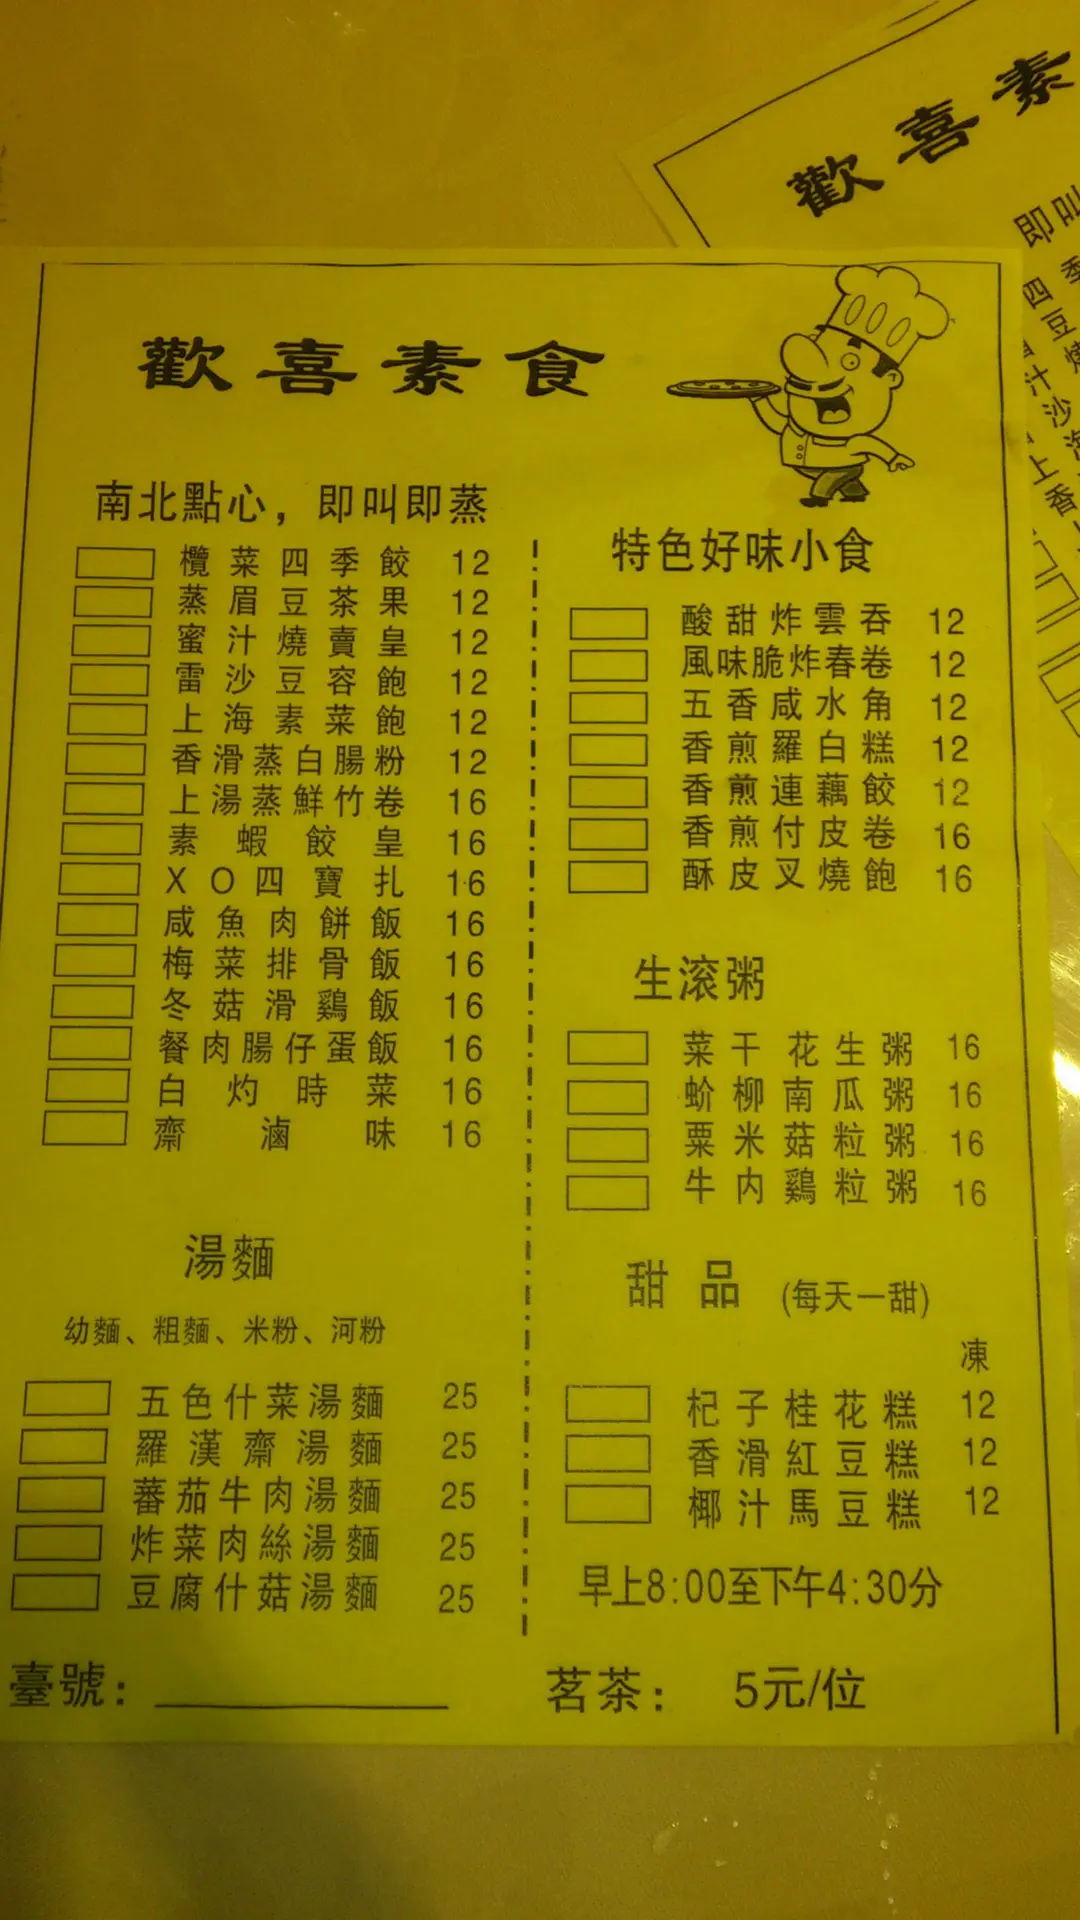 歡喜素食
南北點心，即叫即蒸
欖菜四季餃 12
蒸眉豆茶果 12
蜜汁燒賣皇 12
雷沙豆容飽 12
上海素菜飽 12
香滑蒸白腸粉 12
上湯蒸鮮竹卷 16
素蝦餃皇 16
XO四寶扎 16
咸魚肉餅飯 16
梅菜排骨飯 16
冬菇滑鷄飯 16
餐肉腸仔蛋飯 16
白灼時菜 16
齋滷味 16
湯麵
幼麵、粗麵、米粉、河粉
五色什菜湯麵 25
羅漢齋湯麵 25
蕃茄牛肉湯麵 25
炸菜肉絲湯麵 25
豆腐什菇湯麵 25
臺號：
特色好味小食
酸甜炸雲吞 12
風味脆炸春卷 12
五香咸水角 12
香煎羅白糕 12
香煎連藕餃 12
香煎付皮卷 16
酥皮叉燒飽 16
生滚粥
菜干花生粥 16
蚧柳南瓜粥 16
粟米菇粒粥 16
牛内鷄粒粥 16
甜品 (每天一甜)
凍
杞子桂花糕 12
香滑紅豆糕 12
椰汁馬豆糕 12
早上8:00至下午4:30分
茗茶： 5元/位
歡喜素
即叫